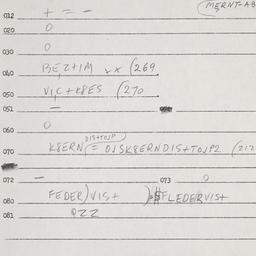 (MERNT-AB
012 + = -
020 0
030 0
040 BEZ+IM xx (269
050 VIC+K8ES (270
051 -
060 0
DIS+TOJP
070 K8ERN = DJSK8ERNDIS+TOJP2 (212
072 - 073 0
080 FEDER)VIS+ )$FLEDERVIS+
081 PZZ